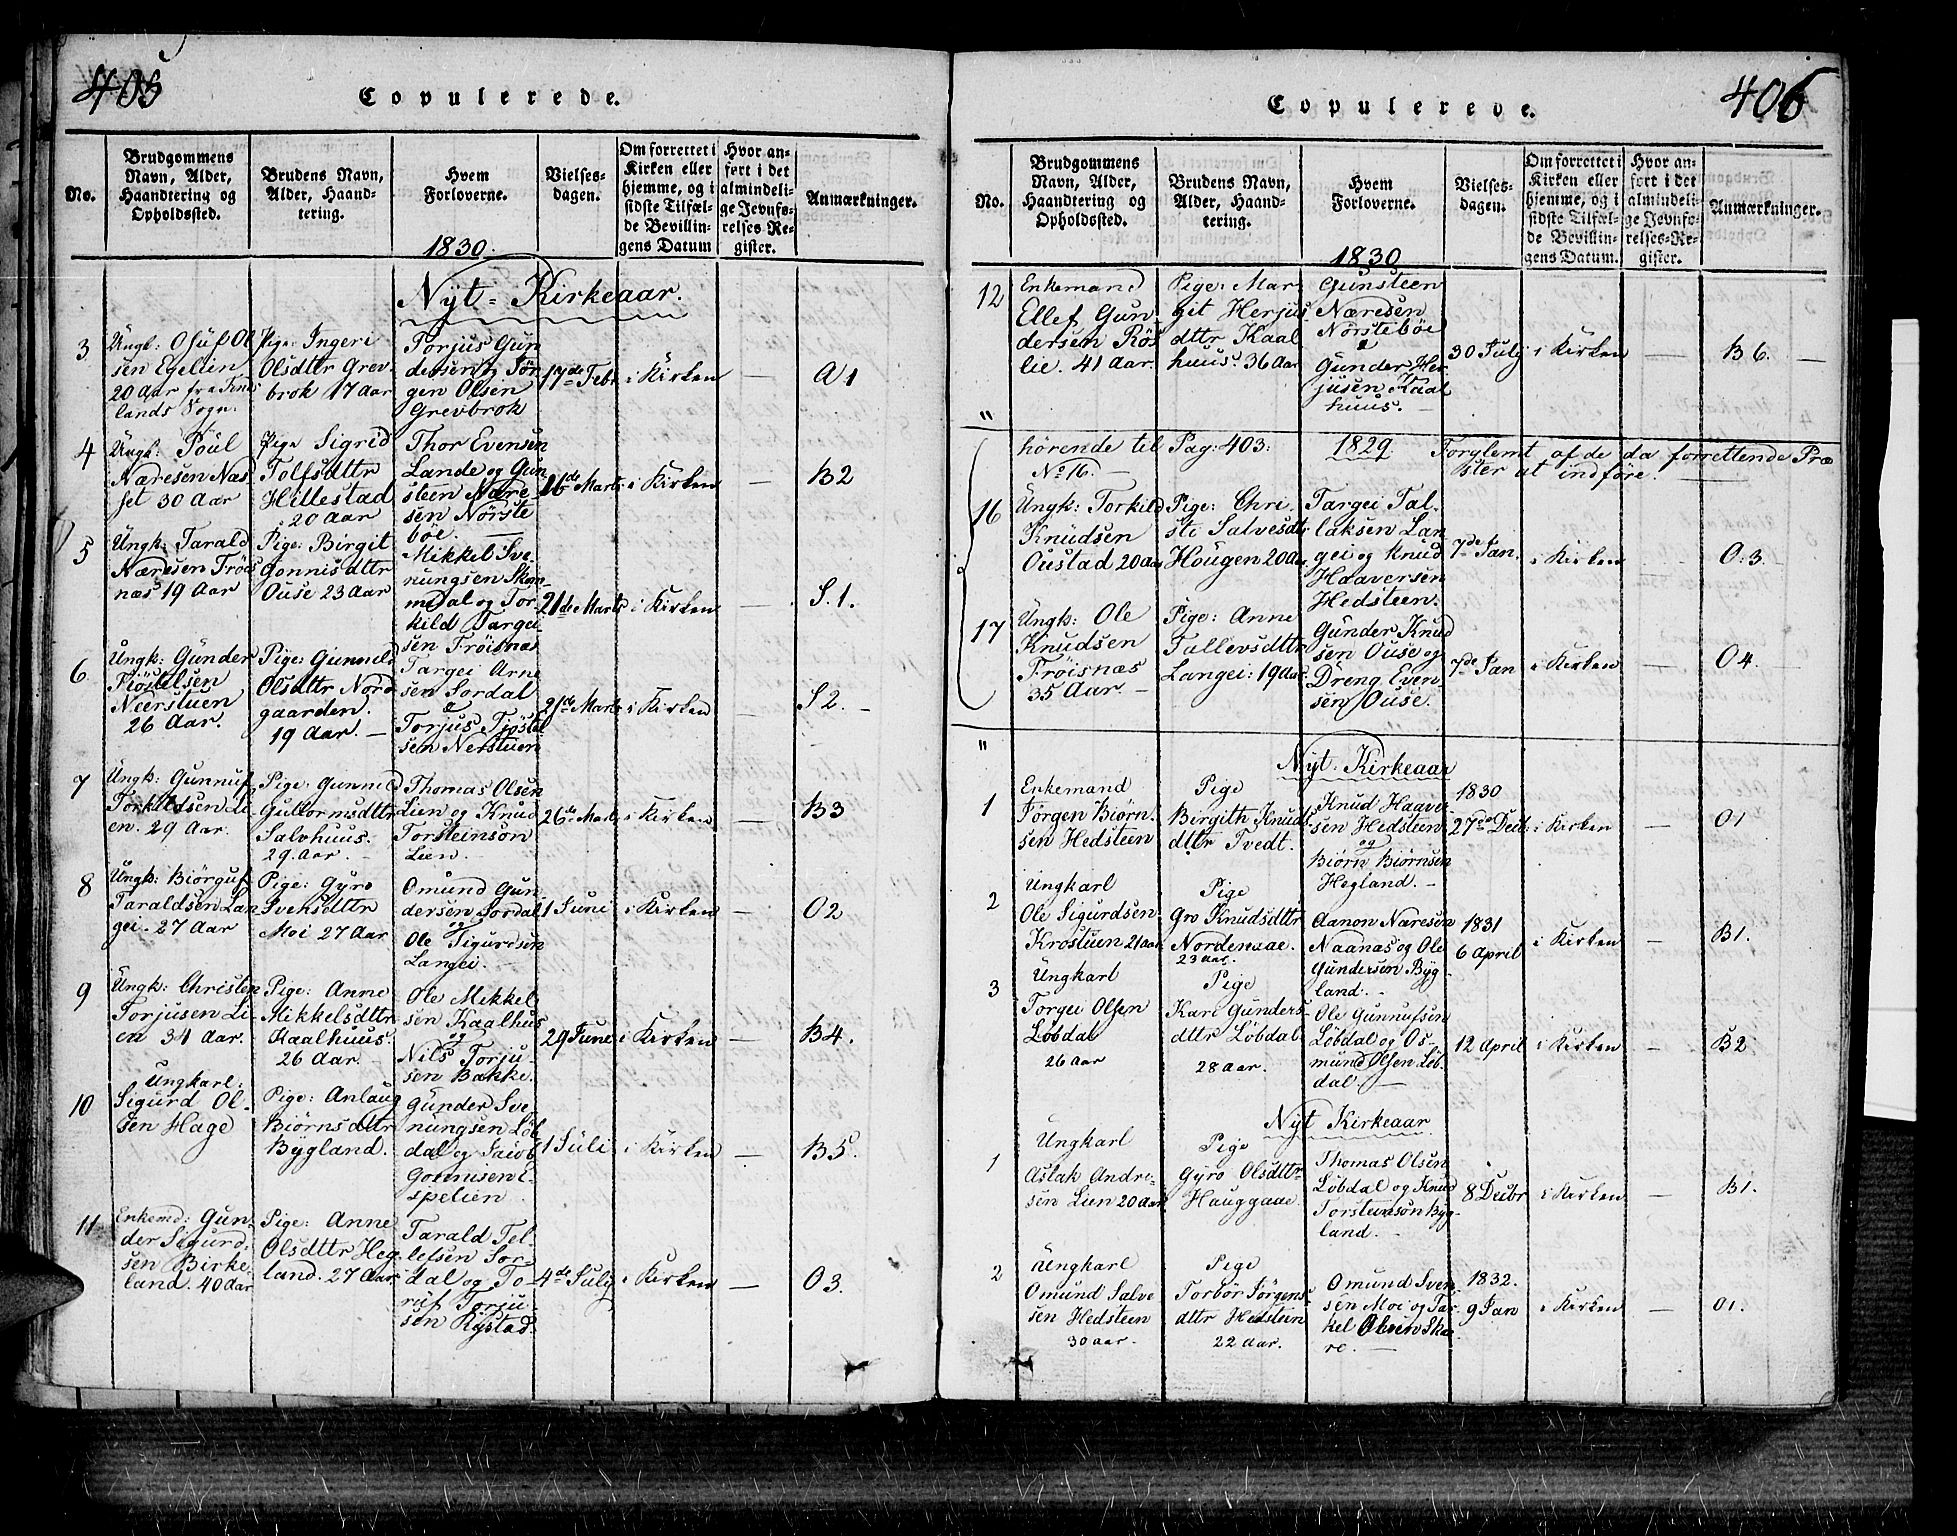 405
Copulerede.
No.
Brudgommens
Navn, Alder,
Haandtering og
Opholdssted.
Brudens Navn,
Alder, Haand-
tering.
Hvem
Forloverne.
Vielses-
dagen.
Om forrettet i
Kirken eller
hjemme, og i
sidste Tilfæl-
de Bevillin-
gens Datum
Hvor an-
ført i det
almindeli-
ge Jevnfø-
relses-Re-
gister.
Anmærkninger.
1830.
Nÿt-Kirkeaar.
3
Ungk: Osuf Ol
sen Egelien
20 Aar fra
lands Sogn.
Pige: Ingeri
Olsdttr Grev
brok 17 Aar
Torjus Gun
dersen og Jör
gen Olsen
Grevbrok
17de Febr.
i Kirken
—
A1
4
Ungk: Poul
Næresen Næs
set 30 Aar
Pige Sigrid
Tolfsdttr
Hillestad
20 Aar
Thor Evensen
Lande og Gun
steen Nære-
sen Nörste
böe.
16de Marts
i Kirken
—
B2
5
Ungk: Tarald
Næresen Fröis
næs 19 Aar
Pige: Birgit
Gonnisdttr
Ouse 23 Aar
Mikkel Sve
nungsen Skom
medal og Tor
kild Targei-
sen Fröisnæs
21de Marts
i Kirken
—
S.1.
6
Ungk: Gunder
Tiöstelsen
Nærstuen
26 Aar.
Pige: Gunnild
Olsdttr Nord
gaarden.
19 Aar.—
Targei Arne
sen Sordal
&
Torjus Tjöstel
sen Nerstuen
21de Marts
i Kirken
—
S2.-
7
Ungk: Gunnuf
Torkildsen Li-
en. 29 Aar.
Pige: Gunnild
Guttormsdttr
Salvhuus.
29. Aar.-
Thomas Olsen
Lien og Knud
Torsteinson
Lien.-
26de Marts
i Kirken
—
B3
8
Ungk: Biörguf
Taraldsen Lan
gei. 27 Aar
Pige: Gyro
Svensdttr
Moi 27 Aar
Omund Gun
dersen Sordal
og
Ole Sigurdsen
Langei.
1 Juni
i Kirken
—
O2
9
Ungk: Christen
Torjusen Li-
en 34 Aar.
Pige: Anne
Mikkelsdttr
Kaalhuus.
26 Aar.-
Ole Mikkel
sen Kaalhus
og
Nils Torju-
sen Bakke.
29 June
i Kirken
—
B4.
10
Ungkarl:
Sigurd Ol-
sen Hage
Pige: Anlaug
Biörnsdttr
Bÿgland.
Gunder Sve-
nungsen Löb
dal og
Gonnisen E-
spelien
1 Juli
i Kirken
—
B5.
11
Enkemd: Gun
der Sigurd-
sen Birke
land. 40 Aar
Pige: Anne
Olsdttr Heg
land. 27 Aar
Tarald Tel
lefsen Sor-
dal og To-
ruf Torju-
sen Rystad.
4de July
i Kirken
—
O3.
406
Copulerede.
No.
Brudgommens
Navn, Alder,
Haandtering og
Opholdssted.
Brudens Navn,
Alder, Haand-
tering.
Hvem
Forloverne.
Vielses-
dagen.
Om forrettet i
Kirken eller
hjemme, og i
sidste Tilfæl-
de Bevillin-
gens Datum.
Hvor an-
ført i det
almindeli-
ge Jevnfø-
relses-Re-
gister.
Anmærkninger.
1830
12
Enkemand
Ellef Gun
dersen Rös
lie. 41 Aar.
Pige: Mar
git Herjus
dttr Kaal
huus. 36 Aar
Gunsteen
Næresen
Norstebøe
&
Gunder Her
jusen Kaal
huus.-
30 July
i Kirken
—
B6.
—
"
hörende til Pag: 403: 1829 Forglemt af de da forrettende Præ
No 16.— ster at indföre.
16
Ungk: Torkild
Knudsen
Oustad 20 Aar
Pige: Chri-
sti Salvesdtr
Hougen 20 Aar
Targei Tal-
laksen Lan
gei og Knud
Haaversen
Hedsteen.
7de Jan.
i Kirken
—
O.3.
17
Ungk: Ole
Knudsen
Fröisnæs
35 Aar.—
Pige: Anne
Tallevsdttr
Langei: 19 Aar.
Gunder Knud
sen Ouse og
Dreng Even-
sen Ouse.
7de Jan
i Kirken
—
O4.
"
Nÿt-Kirkeaar
1
Enkemand
Jörgen Biörn-
sen Hedsteen
Pige
Birgith Knuds
dttr Tvedt.
Knud Haaver-
sen Hedsteen
og
Biörn Biörnsen
Hegland.-
1830
27de Decbr
i Kirken
—
O1
2
Ungkarl
Ole Sigurdsen
Krostuen 21 aar
Pige
Gro Knudsdttr
Nordenaae.
23 aar.
Aanon Næresen
Naanas og Ole
Gundersen Byg
land.-
1831
6 April
i Kirken
—
B1.
3
Ungkarl
Torgei Olsen
Løbdal
26 aar
Pige
Kari Gunders-
dttr Løbdal
28 aar.
Ole Gunnufsen
Løbdal og Os-
mund Olsen Løb-
dal —
12 April
i Kirken
—
B2
Nÿt Kirkeaar
1
Ungkarl
Aslak Andre-
sen Lien 20 aar
Pige
Gyro Olsdttr
Hauggaae.
Thomas Olsen
Løbdal og Knud
Torsteinsøn Byg-
land.
8 Decbr
i Kirken
—
B1.
2
Ungkarl
Omund Salve
sen Hedsteen
30 aar
Pige
Torbør Jörgens-
dttr Hedsteen
22 aar.
Omund Sven
sen Moi og Tar-
kel Olsen Ska-
re.—
1832.
9 Jan
i Kirken
—
O1.